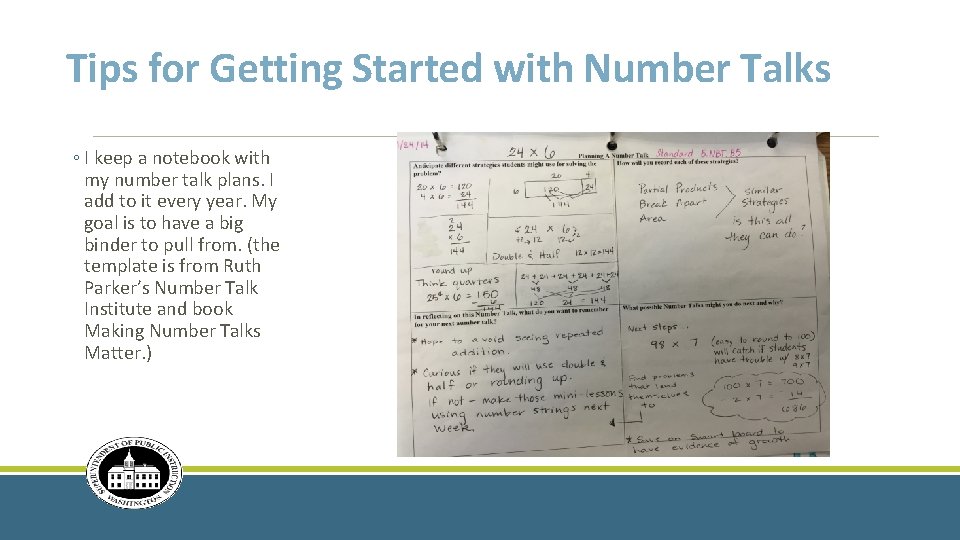 Tips for Getting Started with Number Talks
◦ I keep a notebook with
my number talk plans. I
add to it every year. My
goal is to have a big
binder to pull from. (the
template is from Ruth
Parker’s Number Talk
Institute and book
Making Number Talks
Matter. )
1/24/14
24 x 6
Planning A Number Talk
Standard 5.NBT.B5
Anticipate different strategies students might use for solving the
problem?
20 x 6 = 120
4 x 6 = 24
144
2
24
x 6
144
20 4
6 120 24
144
24 x 6
÷2 12 12 x2
Double & Half 12 x 12 = 144
round up
Think quarters
25 x 6 = 150
- 6
144
24 + 24 + 24 + 24 + 24 + 24
48 48 48
120 24 = 144
How will you record each of these strategies?
Partial Products
Break Apart
Area
Similar
Strategies
is this all
they can do?
In reflecting on this Number Talk, what do you want to remember
for your next number talk?
* Hope to avoid seeing repeated
addition.
* Curious if they will use double &
half or rounding up.
if not - make those mini-lessons
using number strings next
week.
What possible Number Talks might you do next and why?
Next steps...
98 x 7
(easy to round to 100)
will catch if students
have trouble w/ 8x7
9x7
Find problems
that lend
themselves
to
100 x 7 = 700
2 x 7 = - 14
686
* Save on Smart board to
have evidence of growth
SUPERINTENDENT OF PUBLIC INSTRUCTION
WASHINGTON